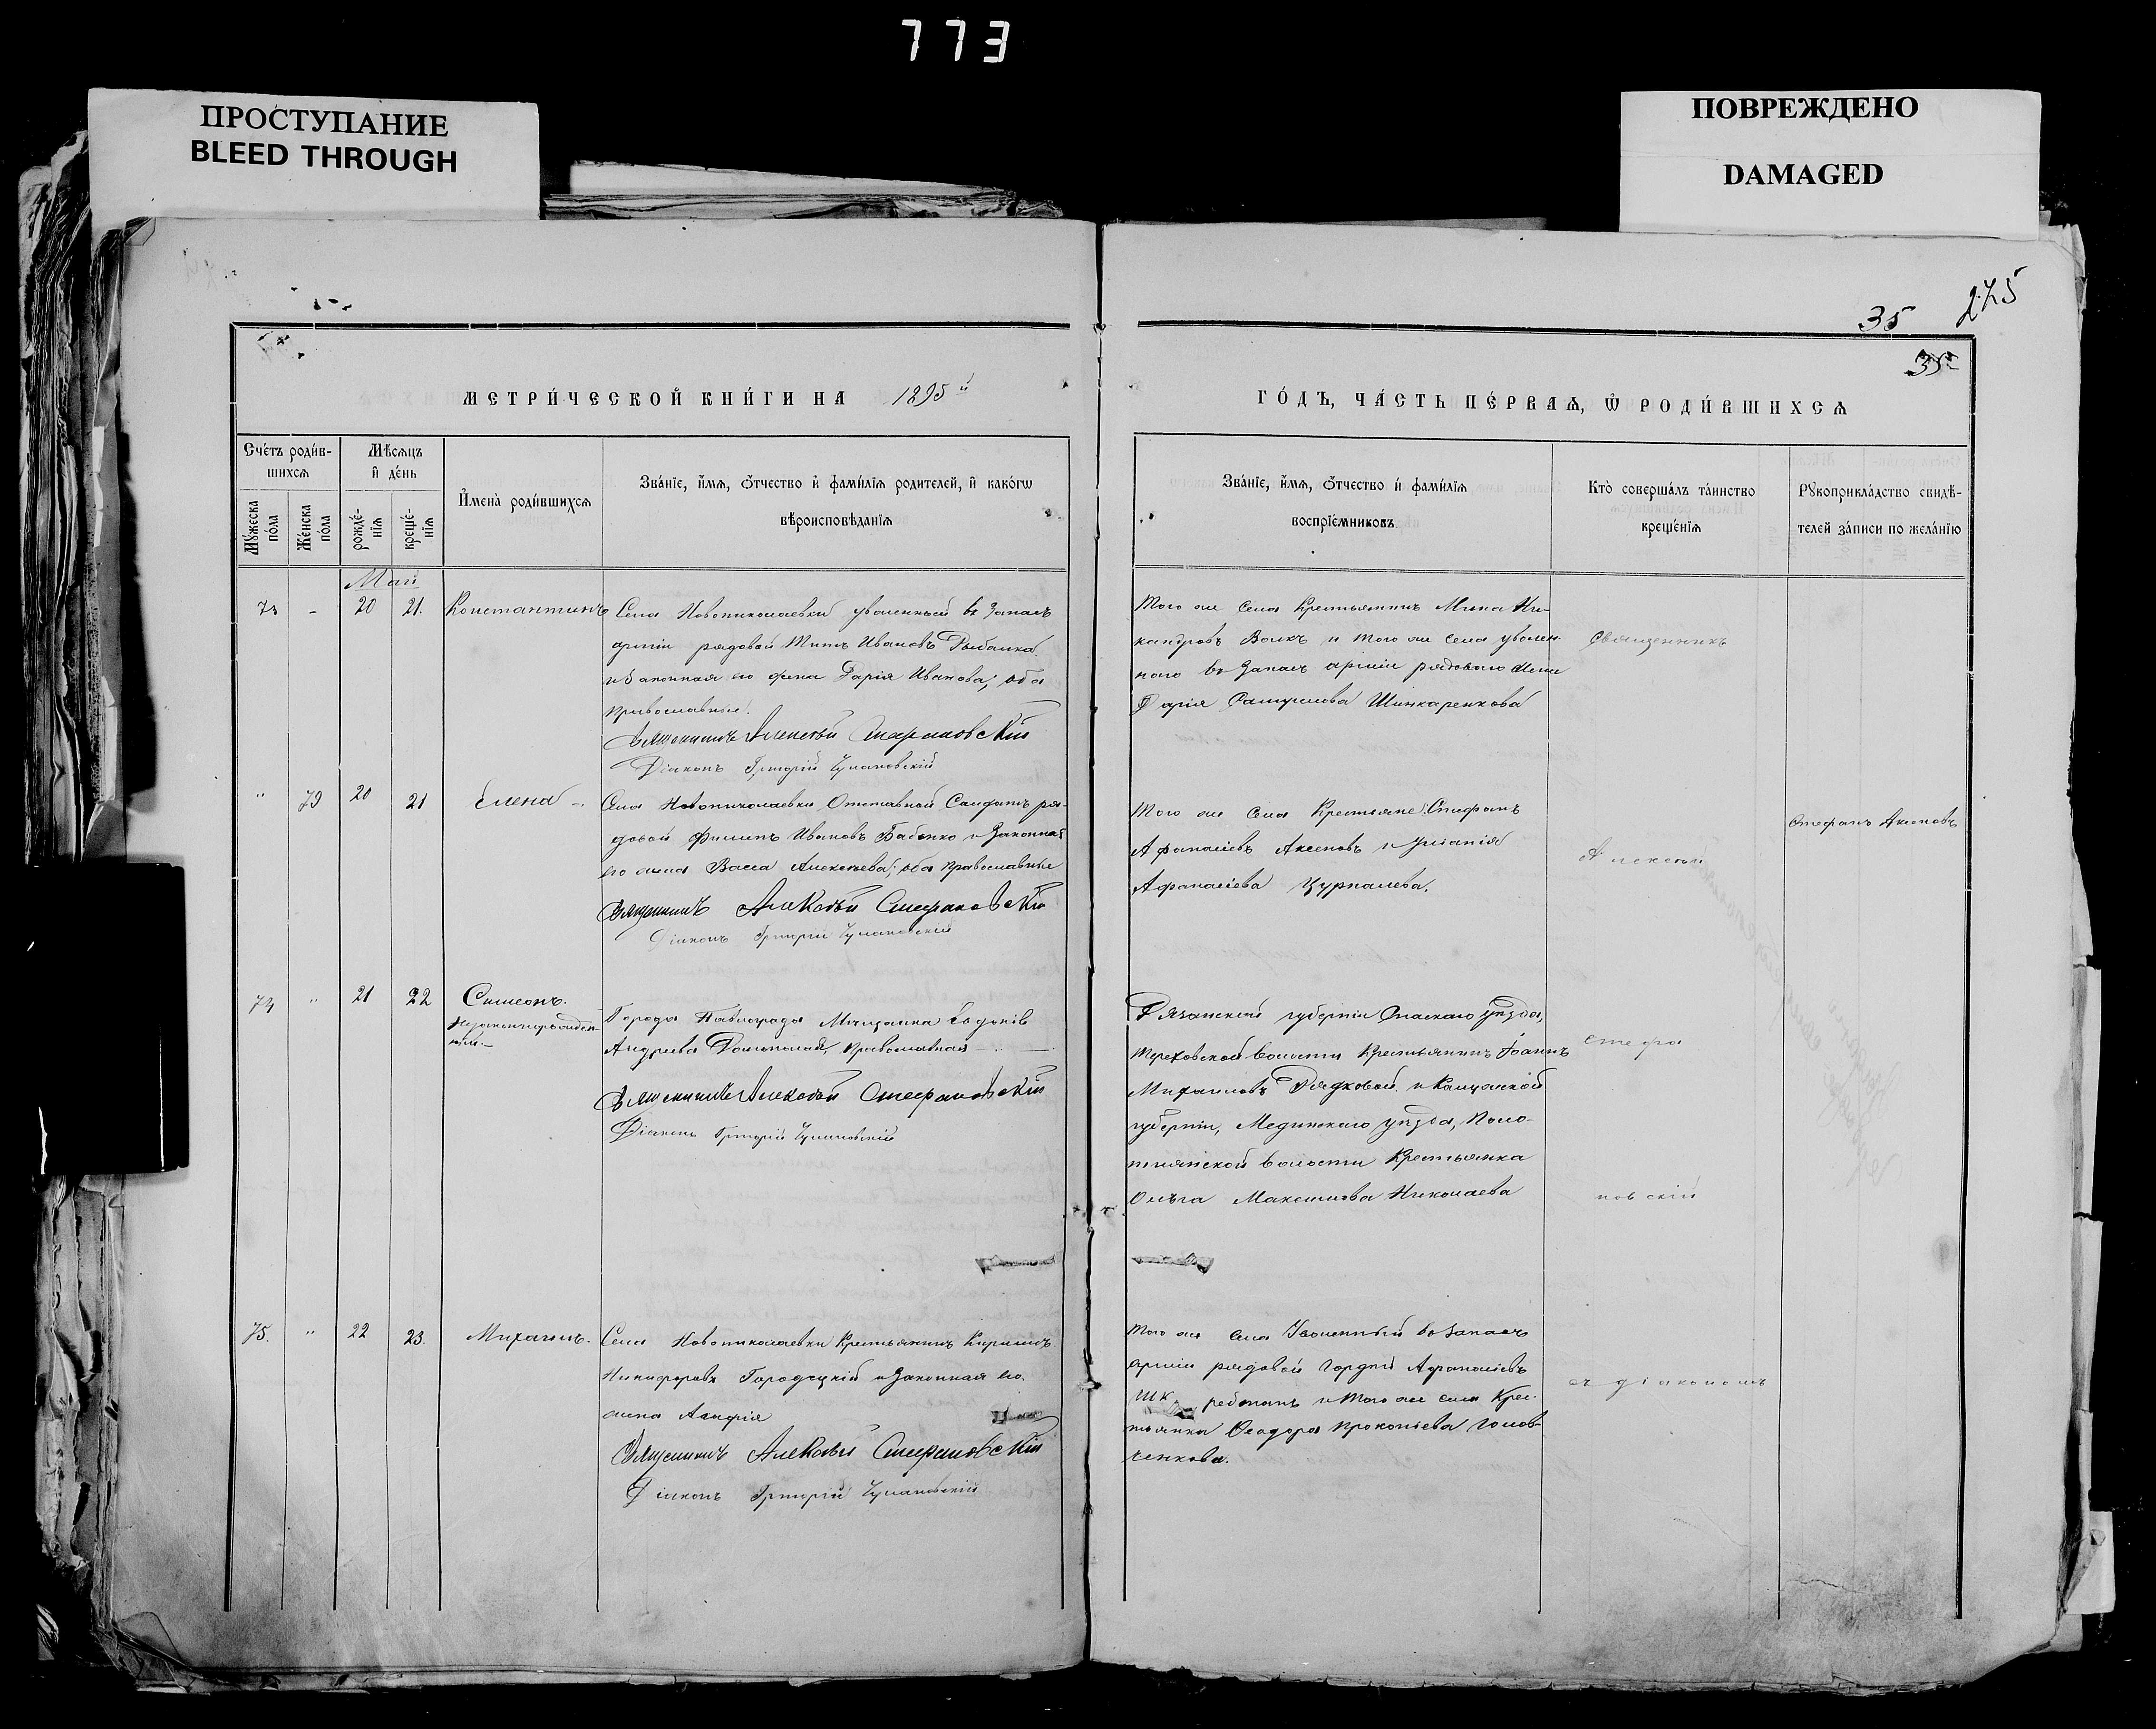 773
ПРОСТУПАНИЕ
BLEED THROUGH
ПОВРЕЖДЕНО
DAMAGED
275
35
35
МЕТРИ́ЧЕСКОЙ КНИ́ГИ НА 1895й
ГО́ДЪ, ЧА́СТЬ ПЕ́РВАѦ, Ѡ РОДИ́ВШИХСѦ
Сче́тъ роди́в-
шихсѧ
Мѣсѧцъ
и҆ де́нь
Мꙋ́жеска по́ла
Же́нска по́ла
рожде́-нїѧ
креще́-нїѧ
И҆мена̀ роди́вшихсѧ
Зва́нїе, и҆́мѧ, ѻ҆́тчество и҆ фами́лїѧ родителей, и҆ како́гѡ
вѣроисповѣ́данїѧ
Зва́нїе, и҆́мѧ, ѻ҆́тчество и҆ фами́лїѧ
воспрїе́мниковъ
Кто̀ соверша́лъ та́инство
креще́нїѧ
Рꙋкоприкла́дство свидѣ́-
телей за́писи по жела́нїю
Май
73 - 20 21. Константинъ
Села Новониколаевки уволенный въ запасъ
арміи рядовой Титъ Ивановъ Рыбалка
и законная его жена Дарія Иванова; оба
православные.
Священникъ Алексѣй Стефановскій
Діаконъ Григорій Чулановскій
Того же села крестьянинъ Мина Ни-
кандровъ Волкъ и того же села уволен-
наго въ запасъ арміи рядового жена
Дарія Самуилова Шинкаренкова
Священникъ
" 79 20 21 Елена -
Села Новониколаевки Отставной Солдатъ ря-
довой Филипъ Ивановъ Бабенко и законная
его жена Васса Алексѣева; оба православные
Священникъ Алексѣй Стефановскій
Діаконъ Григорій Чулановскій
Того же села крестьяне: Стефанъ
Афанасіевъ Аксеновъ и Уліанія
Афанасіева Цурпалева.
Алексѣй
Стефанъ Аксеновъ
74 " 21 22 Симеонъ.
незаконнорожден-
ный.-
Города Павлограда Мѣщанка Евдокія
Андреева, православная
Священникъ Алексѣй Стефановскій
Діаконъ Григорій Чулановскій
Рязанской губерніи Спаскаго уѣзда,
Тереховской волости Крестьянинъ Іоаннъ
Михаиловъ Рядковой и Калужской
губерніи, Медынскаго уѣзда, Поло-
тнянской волости Крестьянка
Ольга Максимова Николаева
Стефа
новскій
75. " 22 23. Михаилъ.
Села Новониколаевки Крестьянинъ Кириллъ
Никифоровъ Городецкій и законная его
жена Агафія
Священникъ Алексѣй Стефановскій
Діаконъ Григорій Чулановскій
Того же села Уволенный въ запасъ
арміи рядовой Гордѣй Афанасіевъ
Шк ребтанъ и того же села Крес-
тьянка Феодора Прокопіева Голов-
ченкова.
съ діакономъ